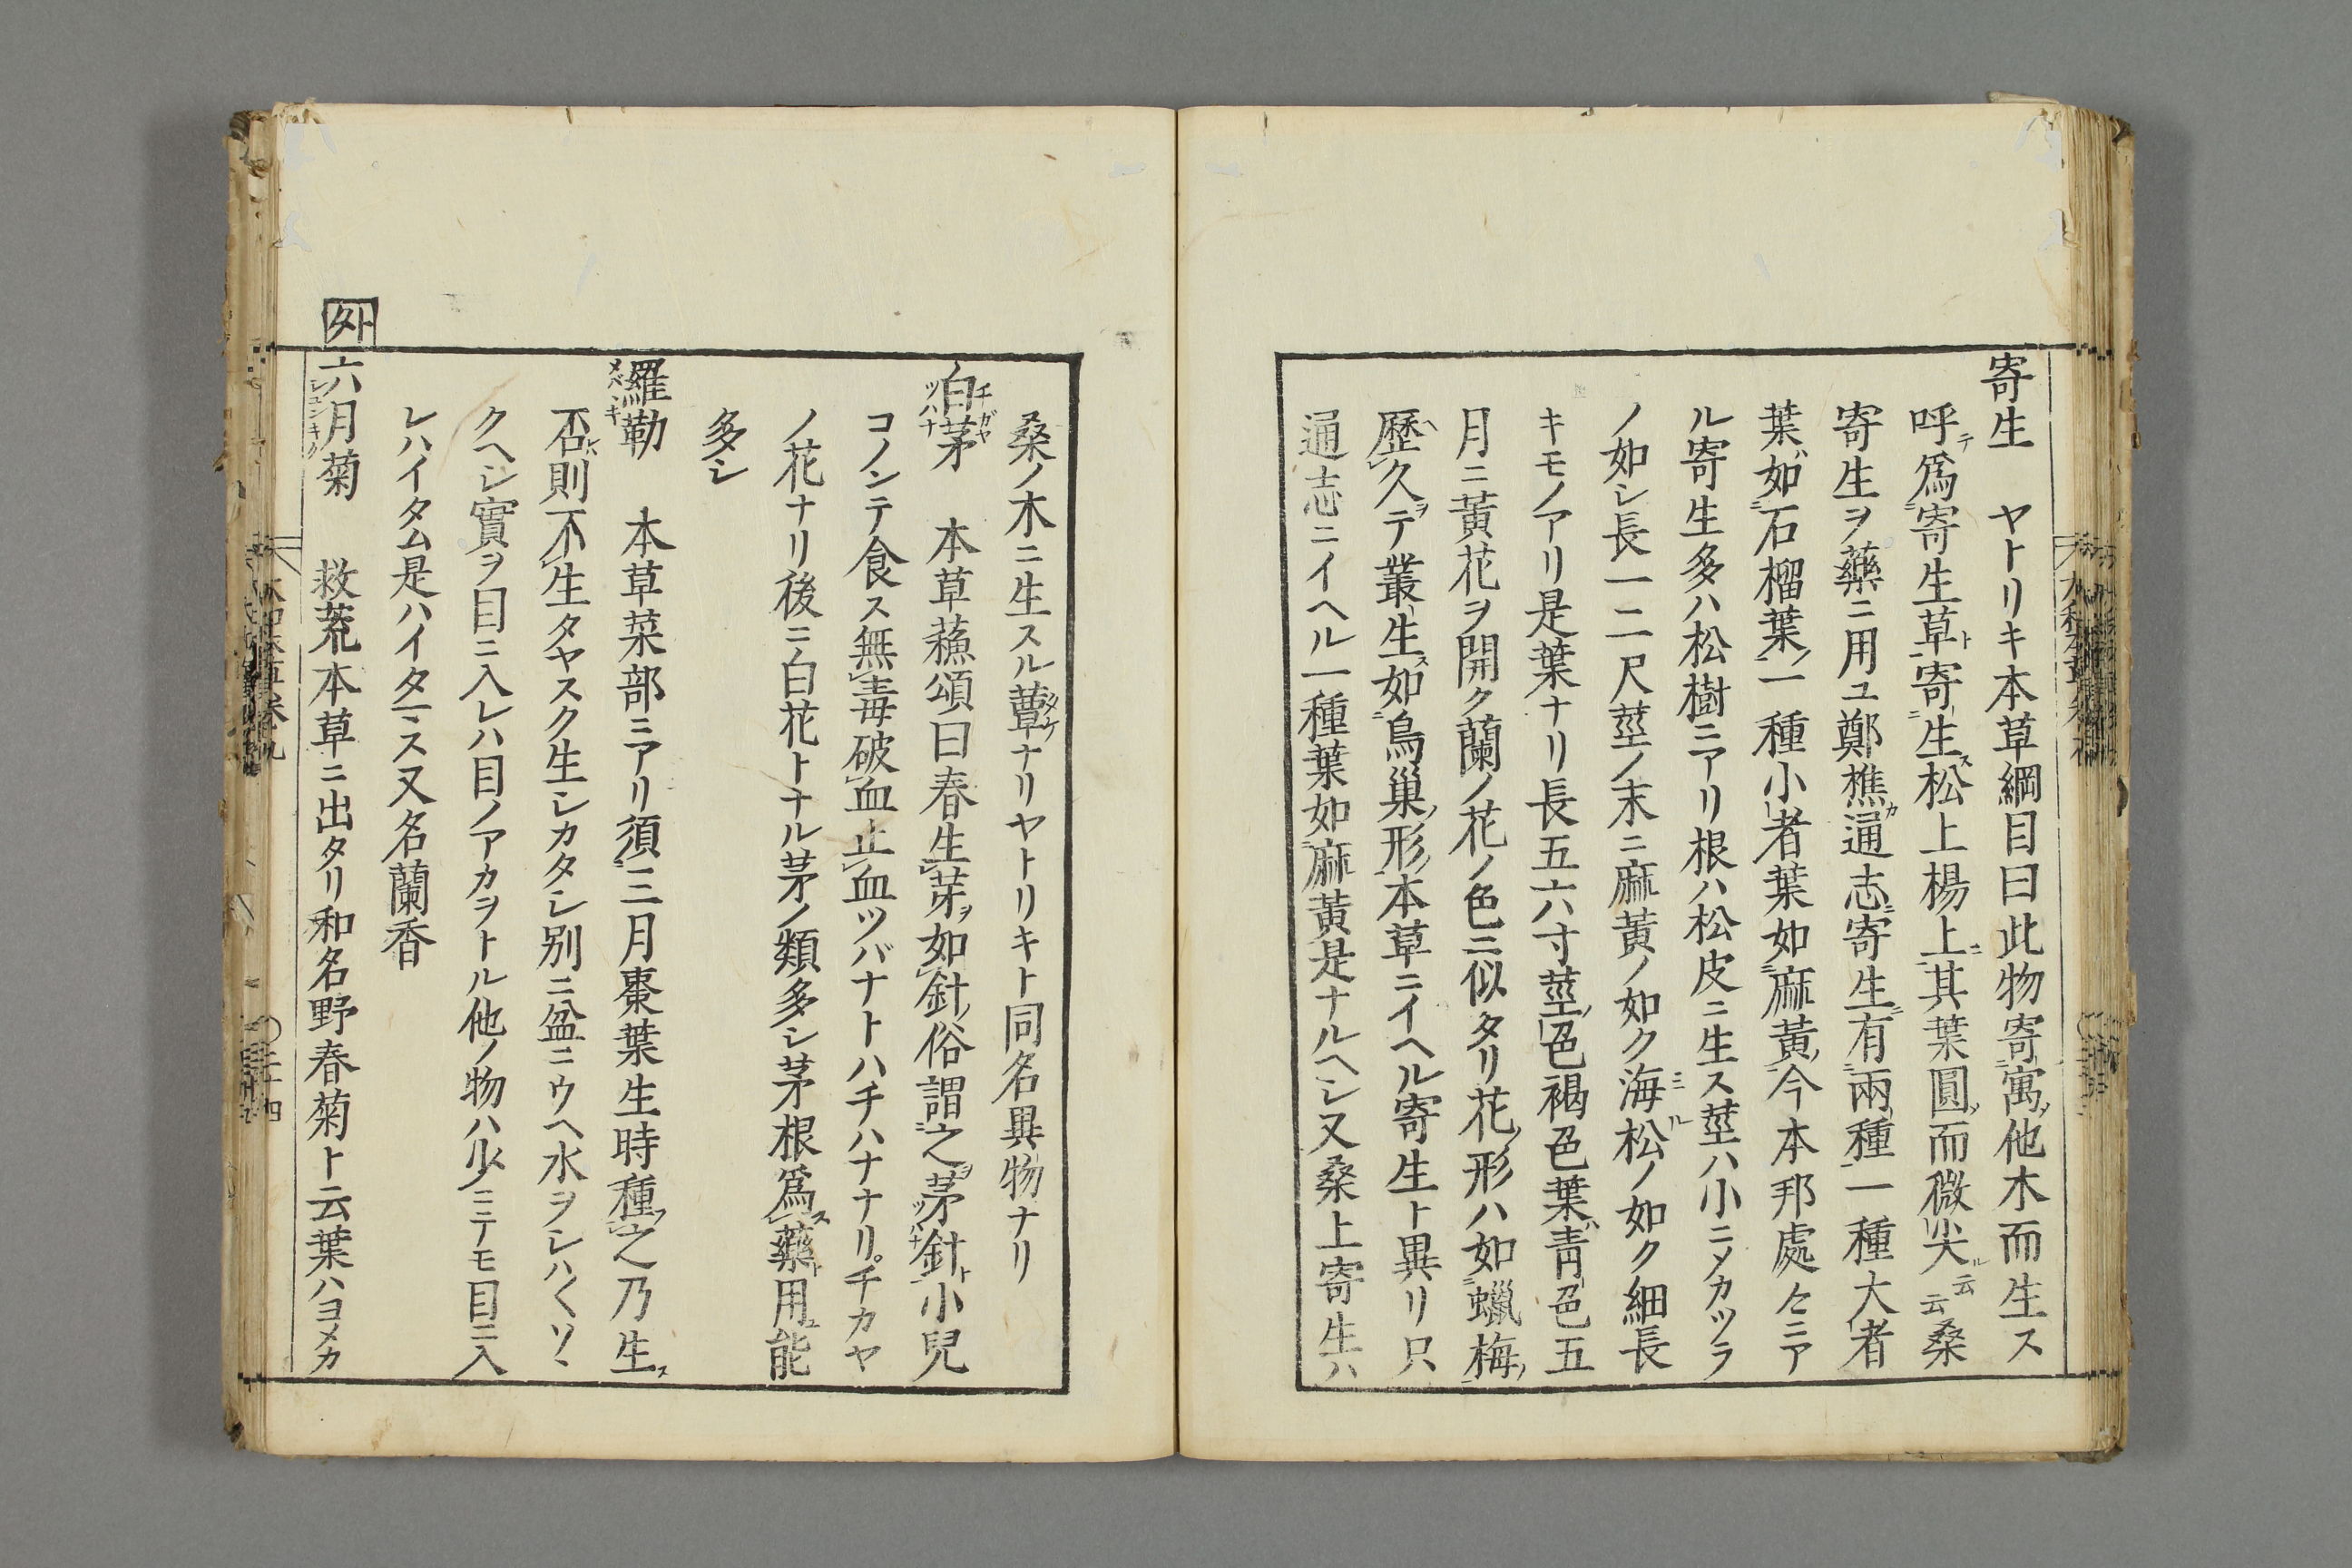 寄生　ヤトリキ本草綱目曰此物寄寓他木而生ス
呼爲寄生草寄生松上楊上其葉圓而微尖云云桑
寄生ヲ藥ニ用ユ鄭樵通志寄生有兩種一種大者
葉如石榴葉一種小者葉如麻黃今本邦處々ニア
ル寄生多ハ松樹ニアリ根ハ松皮ニ生ス莖ハ小ニメカツラ
ノ如シ長一二尺莖ノ末ニ麻黃ノ如ク海松ノ如ク細長
キモノアリ是葉ナリ長五六寸莖色褐色葉靑色五
月ニ黃花ヲ開ク蘭ノ花ノ色ニ似タリ花形ハ如蠟梅
歷久テ叢生如鳥巢形本草ニイヘル寄生ト異リ只
通志ニイヘル一種葉如麻黃是ナルヘシ又桑上寄生ハ
桑ノ木ニ生スル蕈ナリヤトリキト同名異物ナリ
白茅　本草蘓頌曰春生芽如針俗謂之茅針小兒
コノンテ食ス無毒破血止血ツバナトハチハナナリ。チカヤ
ノ花ナリ後ニ白花トナル茅ノ類多シ茅根爲藥用能
多シ
羅勒　本草菜部ニアリ須三月棗葉生時種之乃生
否則不生タヤスク生シカタシ別ニ盆ニウヘ水ヲシハ〱ソヽ
クヘシ實ヲ目ニ入レハ目ノアカヲトル他ノ物ハ少ニテモ目ニ入
レハイタム是ハイタマス又名蘭香
外 六月菊　救荒本草ニ出タリ和名野春菊ト云葉ハヨメカ